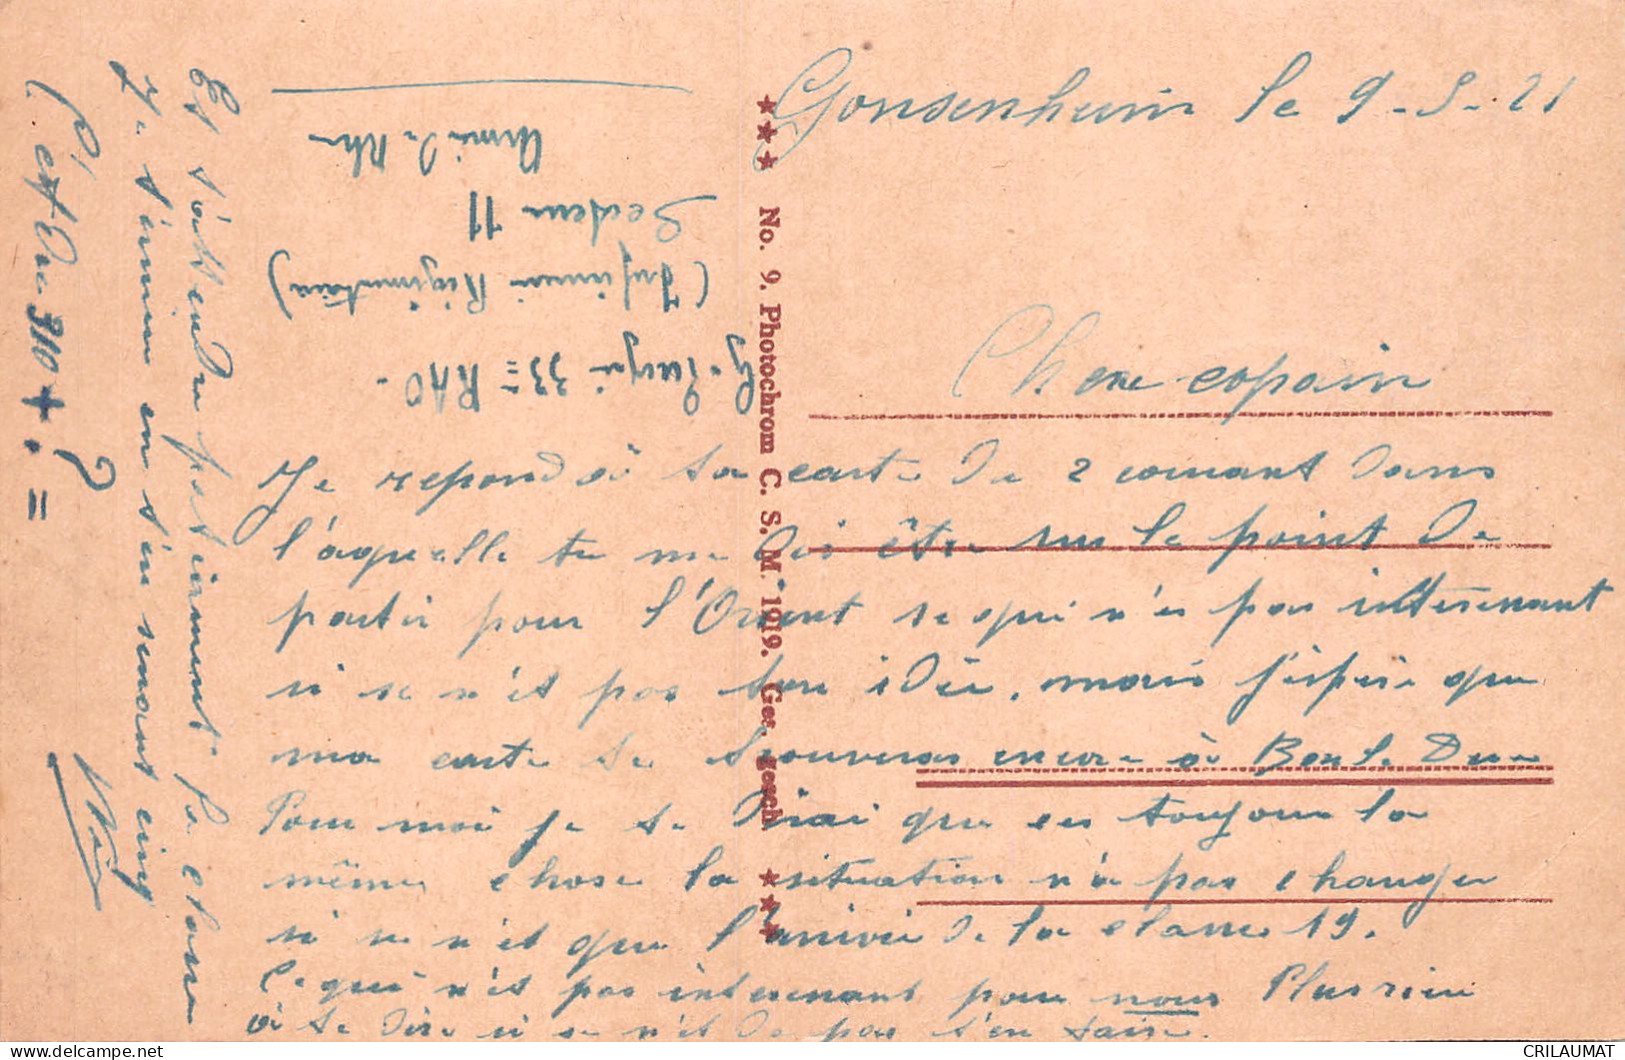 Gonsenheim le 9-5-21
Cher copain
Je repond à ta carte du 2 courant dans
l'aquelle tu me dis être sur le point de
partir pour l'Orient se qui n'es pas interesant
si se n'est pas ton idée, mais j'espère que
ma carte te trouveras encore à Bar le Duc
Pour moi je te dirai que ces toujour la
même chose la situation n'a pas changer
si se n'est que l'arrivée de la classe 19.
Ce qui n'est pas interesant pour nous Plus rien
à te dire si se n'est de pas t'en faire.
Et d'attendre patiemment la classe
Je termine en t'en serrant cinq
C. est Du 310 + . = ?
33e RAC.
(Infirmerie Régimentaire)
Secteur 11
Armée du Rhin
★★★ No. 9. Photochrom C. S. M. 1919. Ges. gesch. ★★★
CRILAUMAT